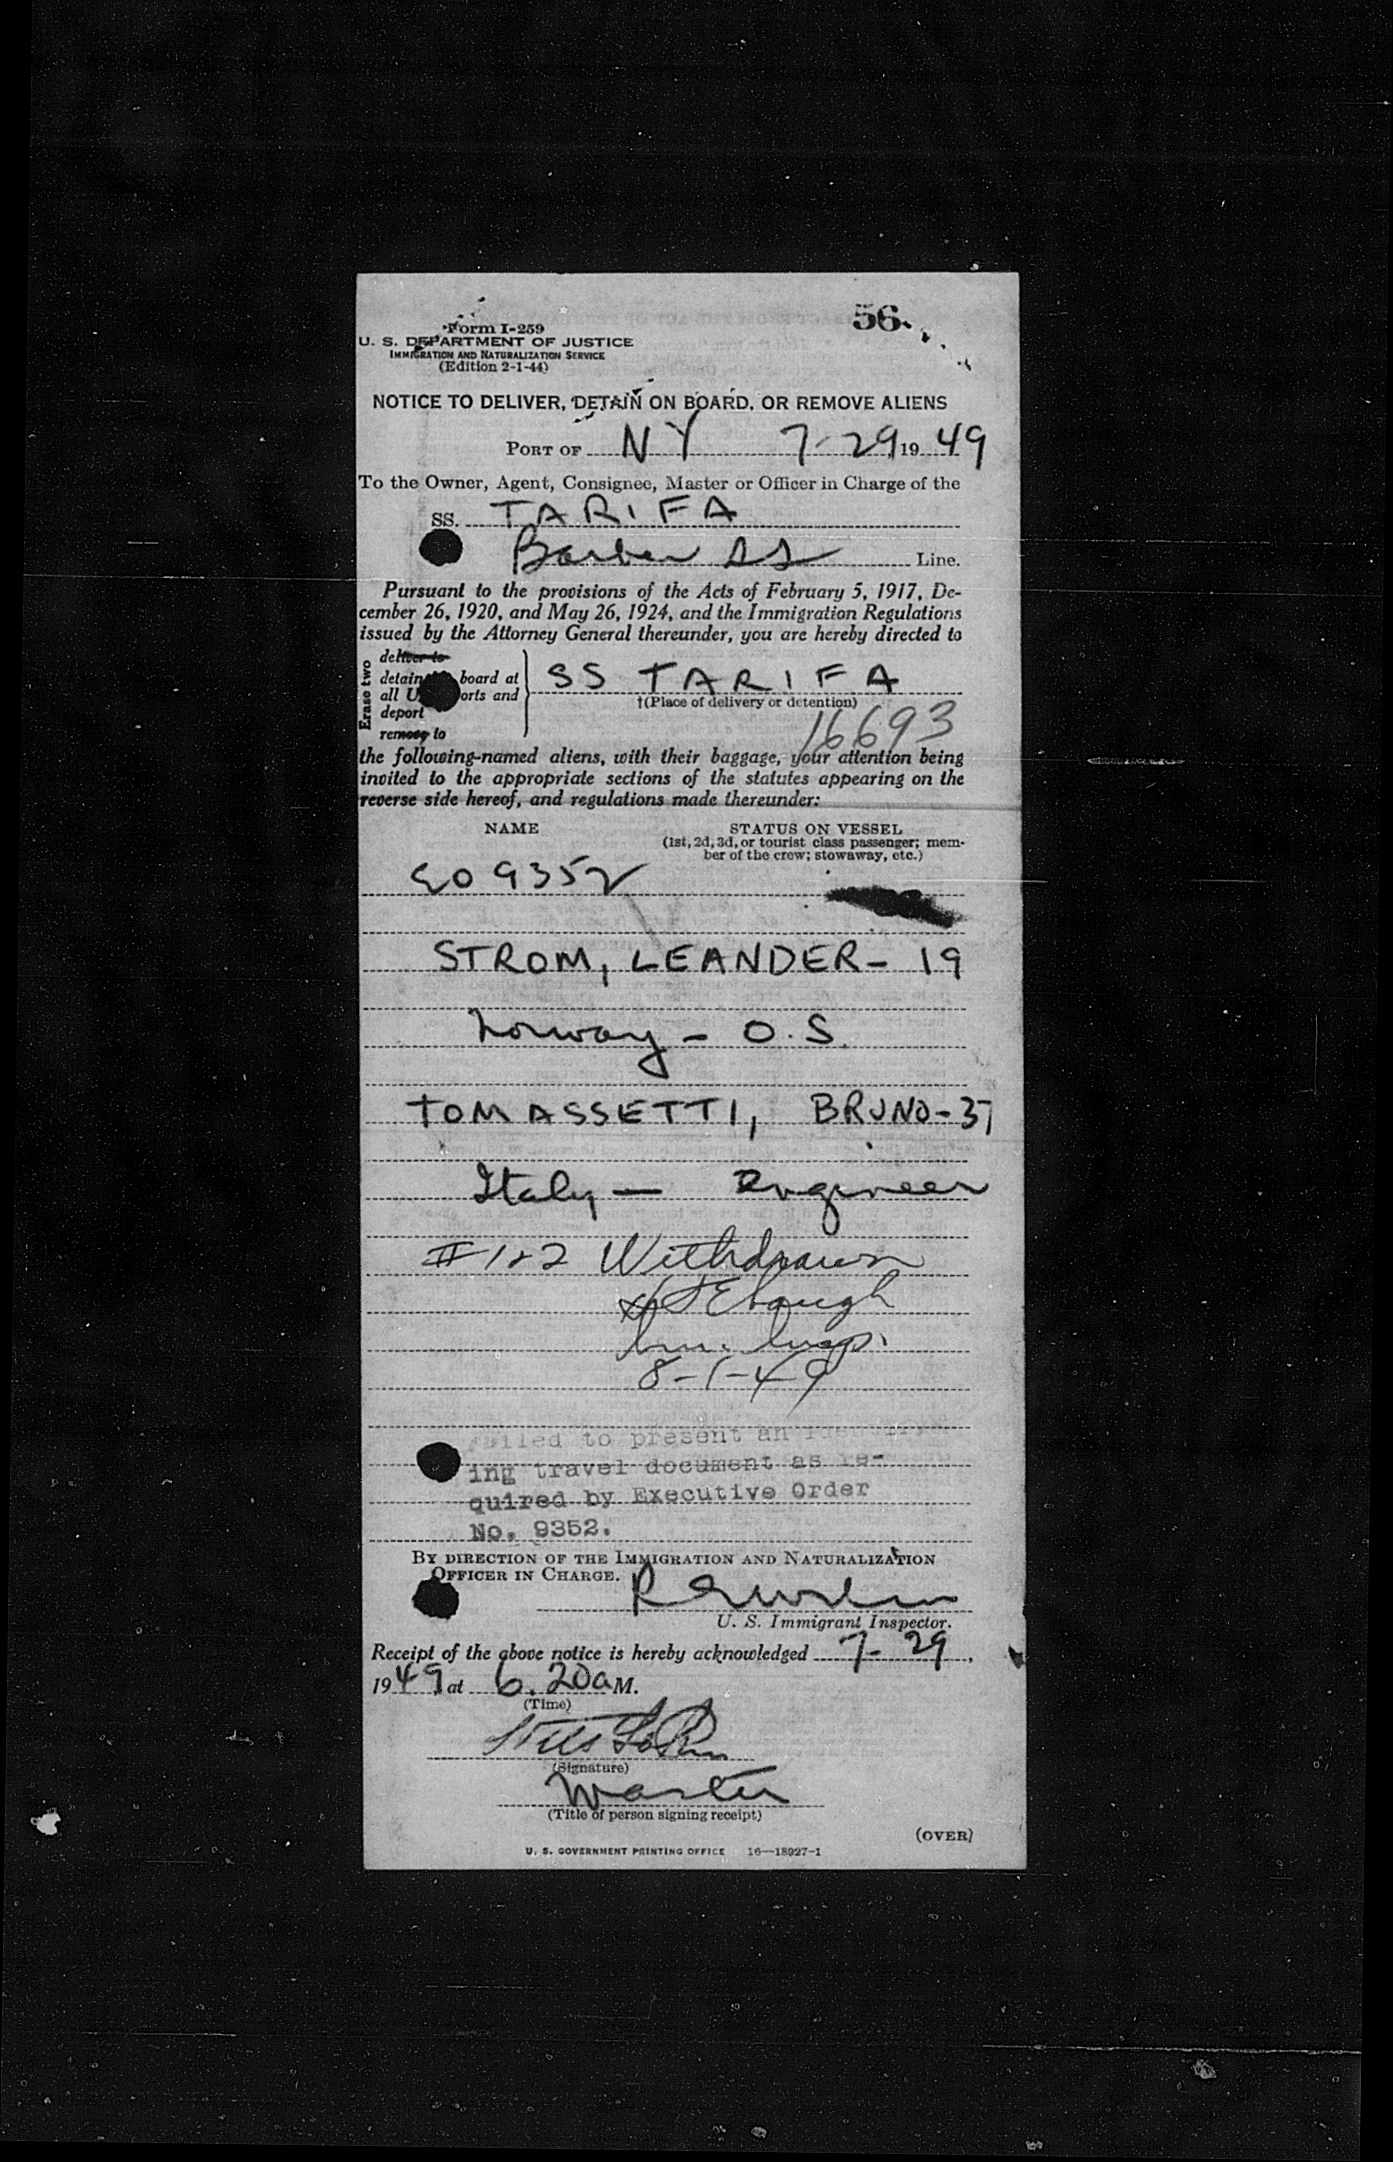 56
Form I-259
U. S. DEPARTMENT OF JUSTICE
IMMIGRATION AND NATURALIZATION SERVICE
(Edition 2-1-44)
NOTICE TO DELIVER, DETAIN ON BOARD, OR REMOVE ALIENS
PORT OF NY 7-29, 1949
To the Owner, Agent, Consignee, Master or Officer in Charge of the
SS. TARIFA
Barber SS Line.
Pursuant to the provisions of the Acts of February 5, 1917, De-
cember 26, 1920, and May 26, 1924, and the Immigration Regulations
issued by the Attorney General thereunder, you are hereby directed to
Erase two
deliver to
detain board at
all U orts and
deport
remove to
SS TARIFA
†(Place of delivery or detention)
16693
the following-named aliens, with their baggage, your attention being
invited to the appropriate sections of the statutes appearing on the
reverse side hereof, and regulations made thereunder:
NAME STATUS ON VESSEL
(1st, 2d, 3d, or tourist class passenger; mem-
ber of the crew; stowaway, etc.)
EO 9352
STROM, LEANDER- 19
Norway - O.S.
TOMASSETTI, BRUNO-37
Italy - Engineer
# 1+2 Withdrawn
Ebaugh
Im. Insp.
8-1-49
Failed to present an
ing travel document as re-
quired by Executive Order
No. 9352.
BY DIRECTION OF THE IMMIGRATION AND NATURALIZATION
OFFICER IN CHARGE.
U. S. Immigrant Inspector.
Receipt of the above notice is hereby acknowledged 7-29,
1949, at 6.20a M.
(Time)
(Signature)
Master
(Title of person signing receipt)
(OVER)
U. S. GOVERNMENT PRINTING OFFICE 16—18927-1